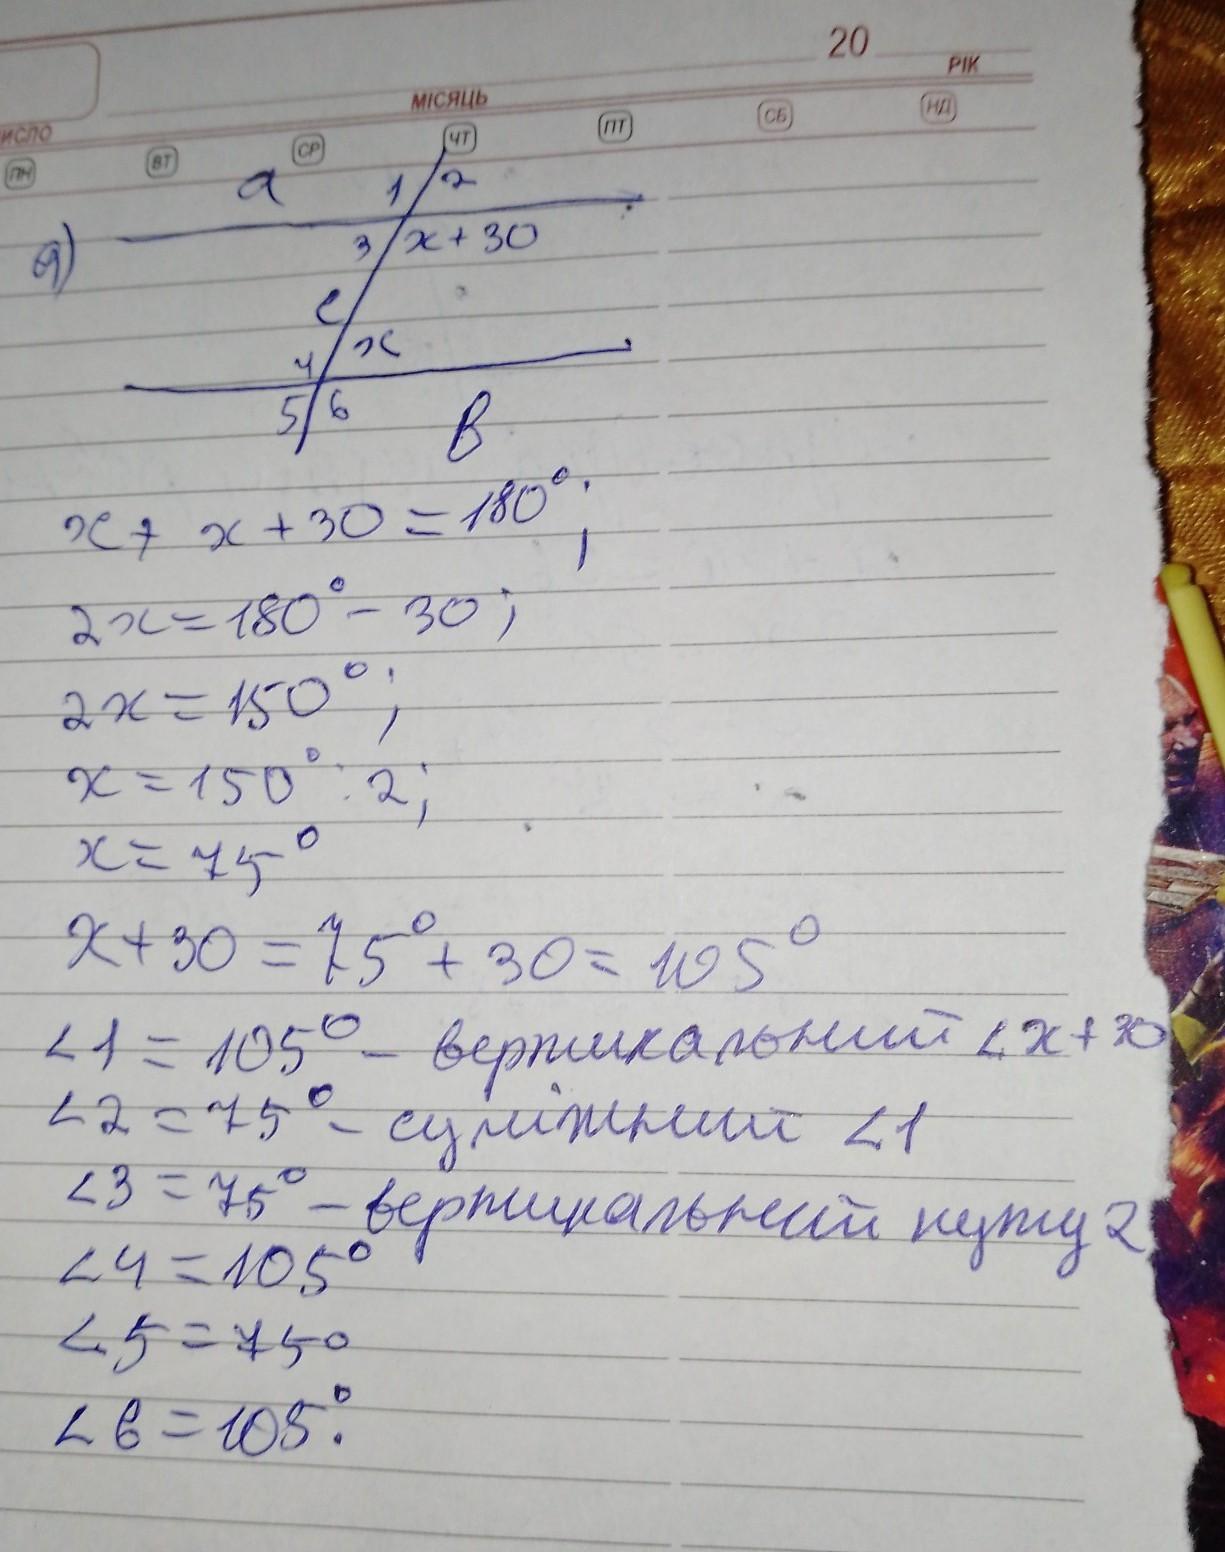 20 РІК
МІСЯЦЬ
ИСЛО
ПН ВТ СР ЧТ ПТ СБ НД
a 1 2
3 x+30
c
4 x
5 6
B
x + x + 30 = 180°;
2x = 180° - 30;
2x = 150°;
x = 150° : 2;
x = 75°
x + 30 = 75° + 30 = 105°
∠1 = 105° - вертикальний ∠x+30
∠2 = 75° - суміжний ∠1
∠3 = 75° - вертикальний куту 2
∠4 = 105°
∠5 = 75°
∠6 = 105°.